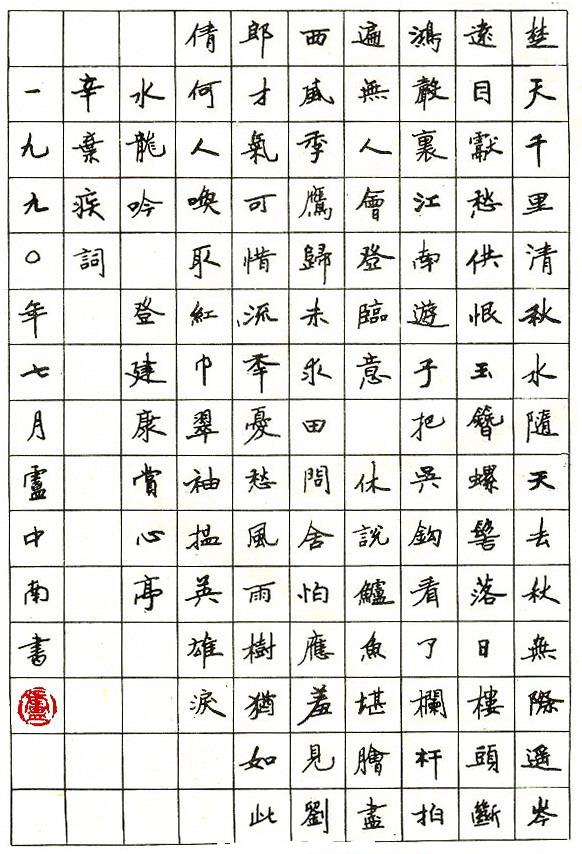 楚天千里清秋水隨天去秋無際遥岑
遠目獻愁供恨玉簪螺髻落日樓頭斷
鴻聲裏江南遊子把吳鈎看了欄杆拍
遍無人會登臨意 休說鱸魚堪膾盡
西風季鷹歸未求田問舍怕應羞見劉
郎才氣可惜流年憂愁風雨樹猶如此
倩何人喚取紅巾翠袖搵英雄淚
水龍吟 登建康賞心亭
辛棄疾詞
一九九〇年七月盧中南書